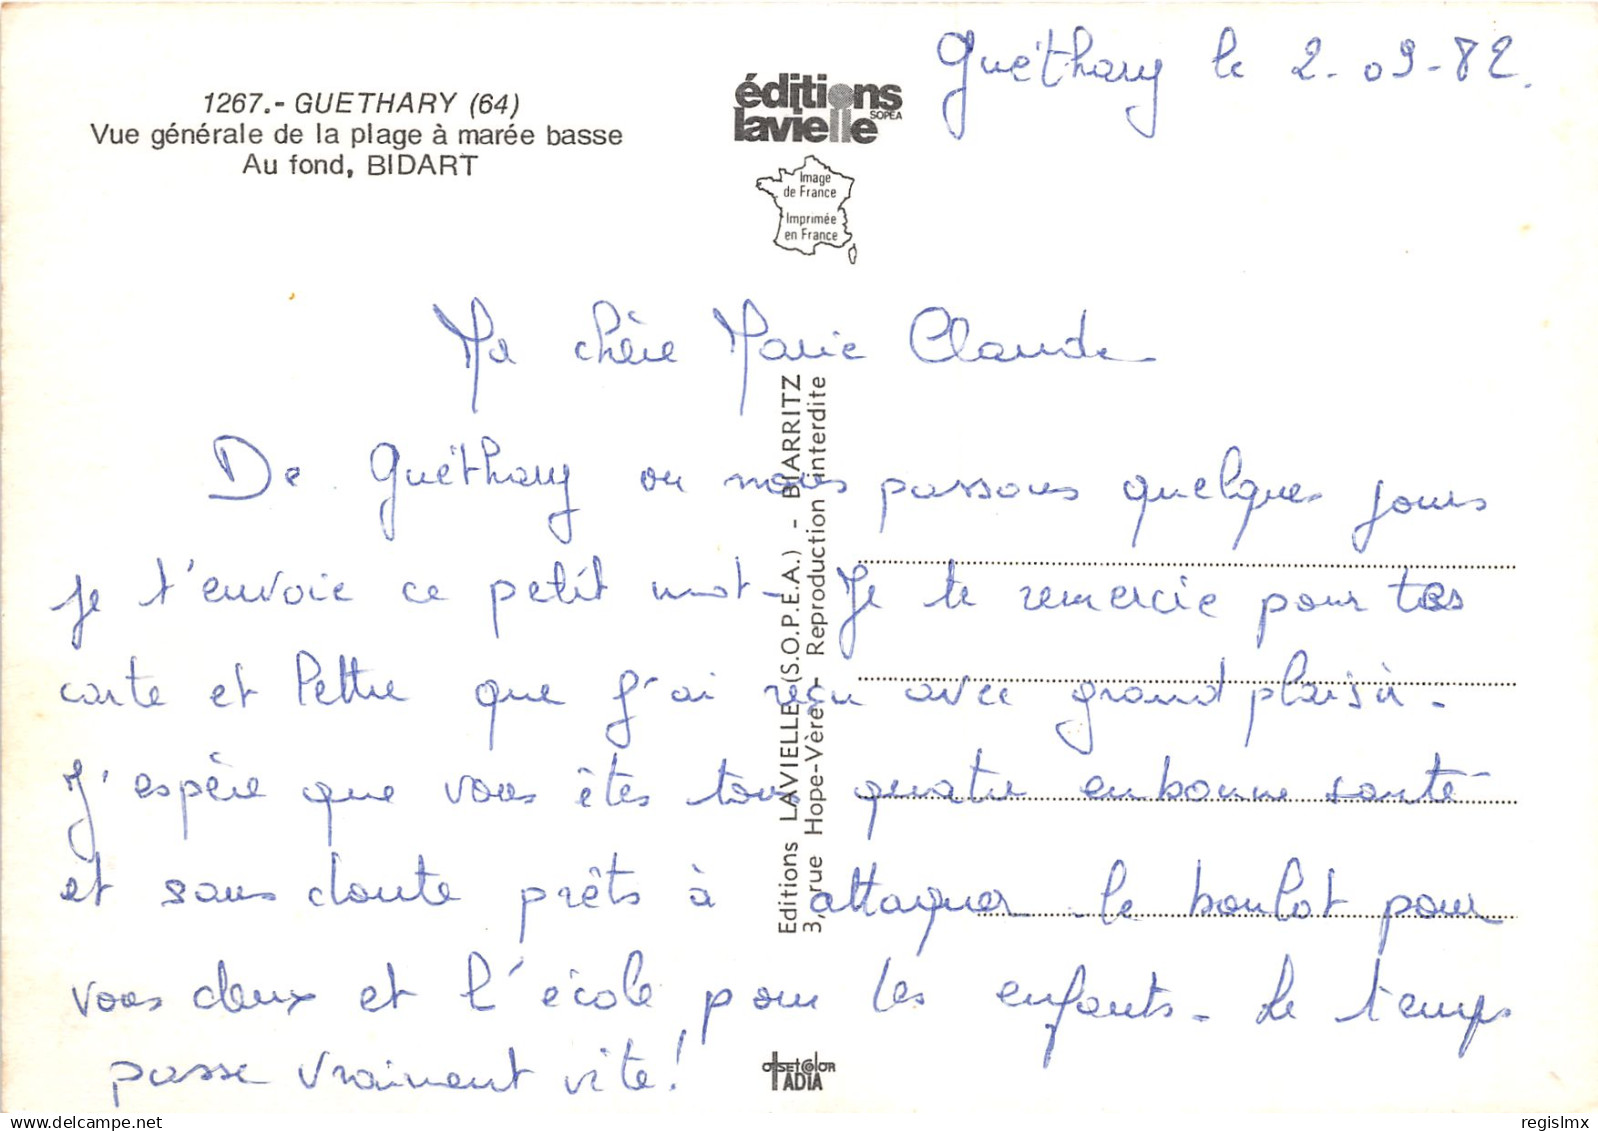 Guéthary le 2-09-82.
1267.- GUETHARY (64)
Vue générale de la plage à marée basse
Au fond, BIDART
éditions
lavielle
SOPEA
Image
de France
Imprimée
en France
Ma chère Marie Claude
De Guéthary ou nous passons quelques jours
je t'envoie ce petit mot - Je te remercie pour tes
carte et lettre que j'ai reçu avec grand plaisir -
J'espère que vous êtes tous quatre en bonne santé
et sans doute prêts à attaquer le boulot pour
vous deux et l'école pour les enfants - Le temps
passe vraiment vite !
Editions LAVIELLE (S.O.P.E.A.) - BIARRITZ
3, rue Hope-Vère - Reproduction interdite
OFFSET COLOR
ADIA
delcampe.net
regislmx